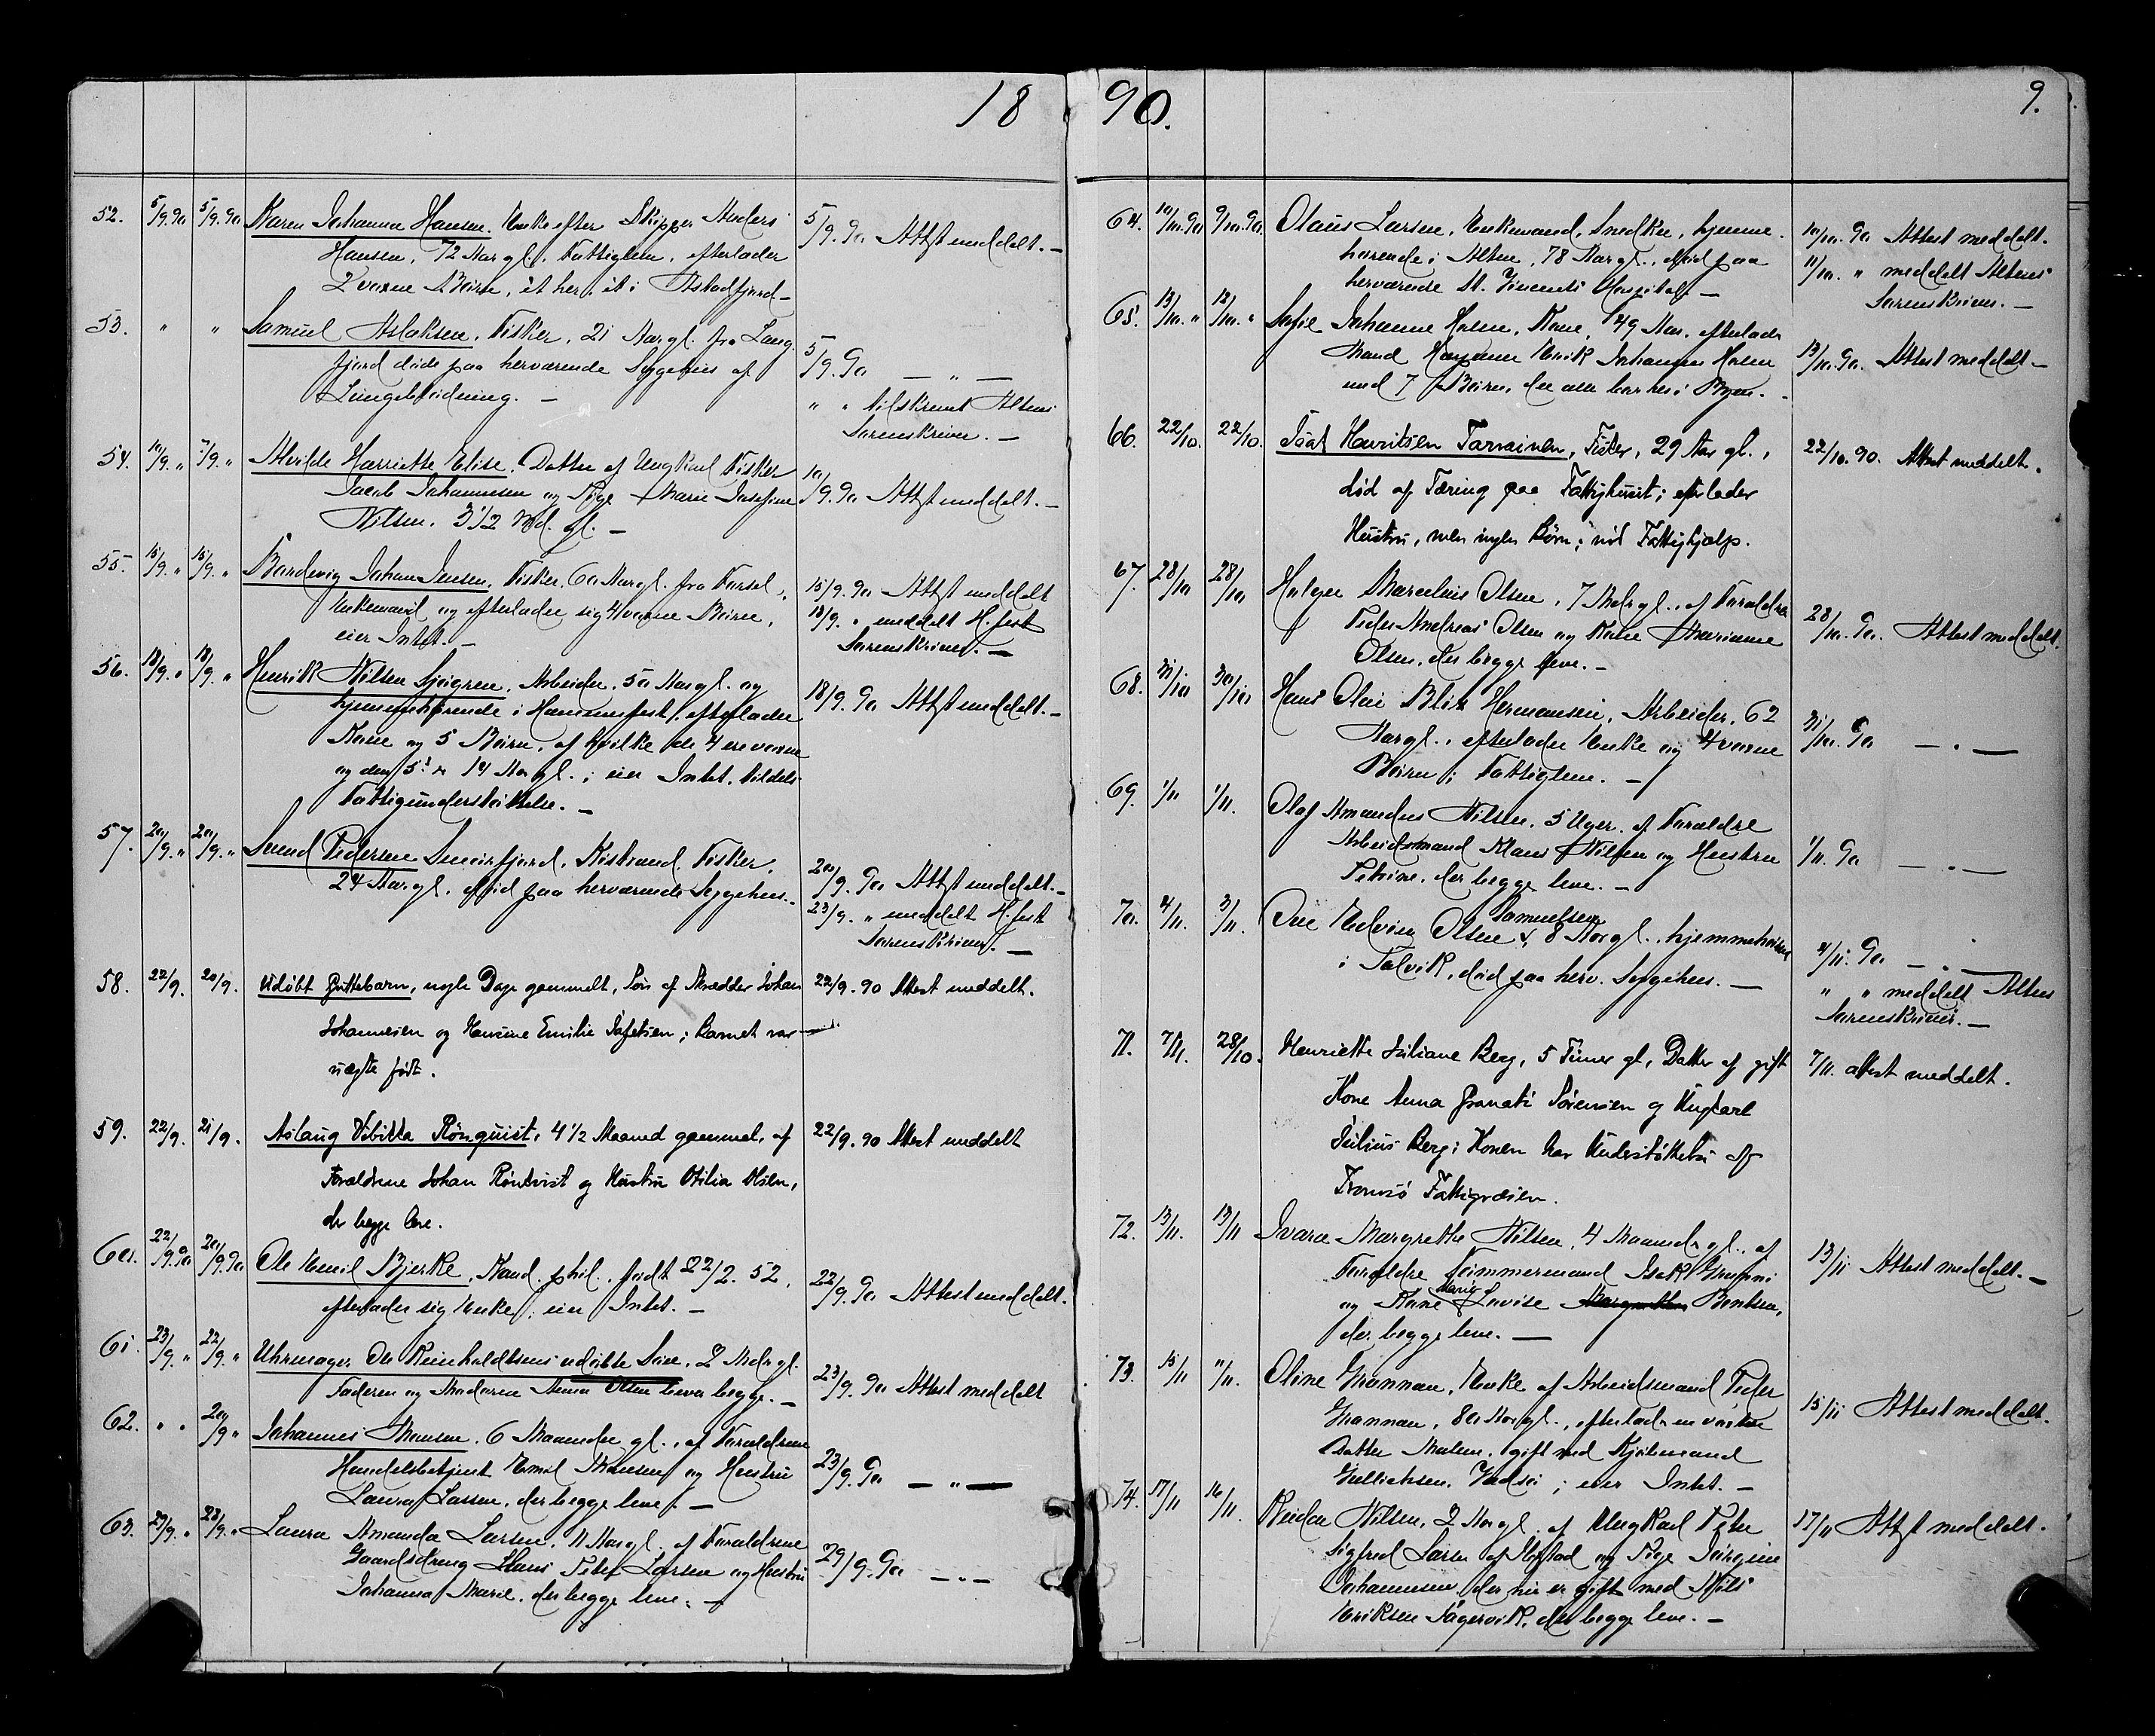 1890.
9.
52. 5/9.90 5/9.90 Karen Johanna Hansen. Enke efter Skipper Anders 5/9.90 Attest meddelt. —
Hansen, 72 Aar gl. Fattiglem, efterlader
2 voxne Børn, et her, et i Astadfjord —
53. " " Samuel Aslaksen, Fisker, 21 Aar gl. fra Lang-
fjord døde paa herværende Sygehus af 5/9.90 — " —
Lungebetændning. — " " tilskrevet Altens
Sorenskriver. —
54. 10/9. " 7/9. " Alvilde Harriette Elise. Datter af Ungkarl Fisker
Jacob Johannesen og Pige Marie Josefine 10/9.90 Attest meddelt. —
Nilsen. 3 1/2 Md. gl. —
55. 15/9. " 15/9. " Johan Jensen, Fisker, 60 Aar gl. fra 15/9.90 Attest meddelt
Enkemand og efterlader sig 4 voxne Børn, 18/9. " meddelt H.fest
eier Intet. — Sorenskriver. —
56. 18/9. " 18/9. " Henrik Nilsen Sjøgren. Arbeider. 50 Aar gl. og
hjemmehørende i Hammerfest, efterlader 18/9.90 Attest meddelt. —
Kone og 5 Børn, af hvilke de 4 ere voxne
og den 5te 14 Aar gl.; eier Intet, tildels
Fattigunderstøttelse. —
57. 20/9. " 20/9. " Svend Pedersen Smørfjord. Kistrand. Fisker,
24 Aar gl. død paa herværende Sygehus. 20/9.90 Attest meddelt. —
23/9. " meddelt H.fest
Sorenskriver. —
58. 22/9. 20/9. Udøbt Guttebarn, nogle Dage gammelt, Søn af Skrædder Johan 22/9.90 Attest meddelt.
Johannesen og Hansine Emilie Tofetsen; Barnet var
uægte født.
59. 22/9. 21/9. Aslaug Vibikka Rönquist, 4 1/2 Maaned gammel, af 22/9.90 Attest meddelt
Forældrene Johan Rönkvist og Hustru Otilia Olsen,
der begge leve.
60. 22/9.90 20/9.90 Ole Emil Bjerke, Kand. phil., født 22/2.52,
efterlader sig Enke; eier Intet. — 22/9.90 Attest meddelt.
61. 23/9. " 22/9. " Uhrmager Ole Reinholdtsens udøbte Søn. 2 Mdr gl.
Faderen og Moderen Anna Olsen lever begge. — 23/9.90 Attest meddelt
62. " " 20/9 " Johannes Monsen, 6 Maaneder gl., af Forældrene
Handelsbetjent Emil Monsen og Hustru 23/9.90 — " —
Laura Larsen, der begge leve. —
63. 29/9. " 28/9. " Laura Amanda Larsen, 11 Aar gl. af Forældrene
Gaardsdreng Hans Peter Larsen og Hustru 29/9.90 — " —
Johanna Marie, der begge leve. —
64. 10/10.90 9/10.90 Olaus Larsen, Enkemand, Snedker, hjemme- 10/10.90 Attest meddelt.
hørende i Alten, 78 Aar gl., død paa 11/10. " meddelt Altens
herværende St. Vincents Hospital. — Sorenskriver. —
65. 13/10. " 12/10. " Sofie Johanne Holm, Kone, 49 Aar, efterlader
Mand Enrik Johansen Holm 13/10.90. Attest meddelt —
med 7 Børn, der alle bor her i Byen. —
66. 22/10. 22/10. Isak Henriksen Tarvainen, Fisker, 29 Aar gl., 22/10.90. Attest meddelt.
død af Tæring paa Fattighuset; efterlader
Hustru, men ingen Børn; nød Fattighjælp.
67. 28/10 28/10 Holger Marelius Olsen, 7 Mdr gl., af Forældre
Peder Andreas Olsen og Kone Marianne 28/10.90. Attest meddelt.
Olsen, der begge leve. —
68. 31/10 30/10 Hans Olai Blix Hermansen, Arbeider, 62
Aar gl., efterlader Enke og 4 voxne 31/10.90 — " —
Børn; Fattiglem. —
69. 1/11 1/11. Olaf Amandus Nilsen, 5 Uger, af Forældre
Arbeidsmand Klaus Nilsen og Hustru 1/11.90 — " —
Petrine, der begge leve. —
70. 4/11. 3/11. Ole Edvin Olsen Samuelsen, 8 Aar gl., hjemmehørende
i Talvik, død paa herv. Sygehus. — 4/11.90 — " —
" " meddelt Altens
Sorenskriver. —
71. 7/11. 28/10. Henriette Juliane Berg, 5 Timer gl, Datter af gift 7/11. attest meddelt.
Kone Anna Granati Sörensen og Ungkarl
Julius Berg; Konen har Understøttelse af
Tromsö Fattigvæsen.
72. 13/11. 13/11 Ivara Margrethe Nilsen, 4 Maaneder gl., af
Forældre Tømmermand Isak 13/11 Attest meddelt. —
og Kone Marie Lovise Bentsen,
der begge leve. —
73. 15/11 11/11. Oline Grannan, Enke af Arbeidsmand Peder
Grannan, 80 Aar gl., efterlader en voxen 15/11 Attest meddelt.
Datter Malene, gift med Kjøbmand
Gullichsen, Vadsø; eier Intet. —
74. 17/11 16/11. Reidar Nilsen, 2 Aar gl. af Ungkarl Peter 17/11 Attest meddelt.
Sigfred Larsen af og Pige Jørgine
Johannesen, der nu er gift med Nils
Eriksen Fagervik, der begge leve. —